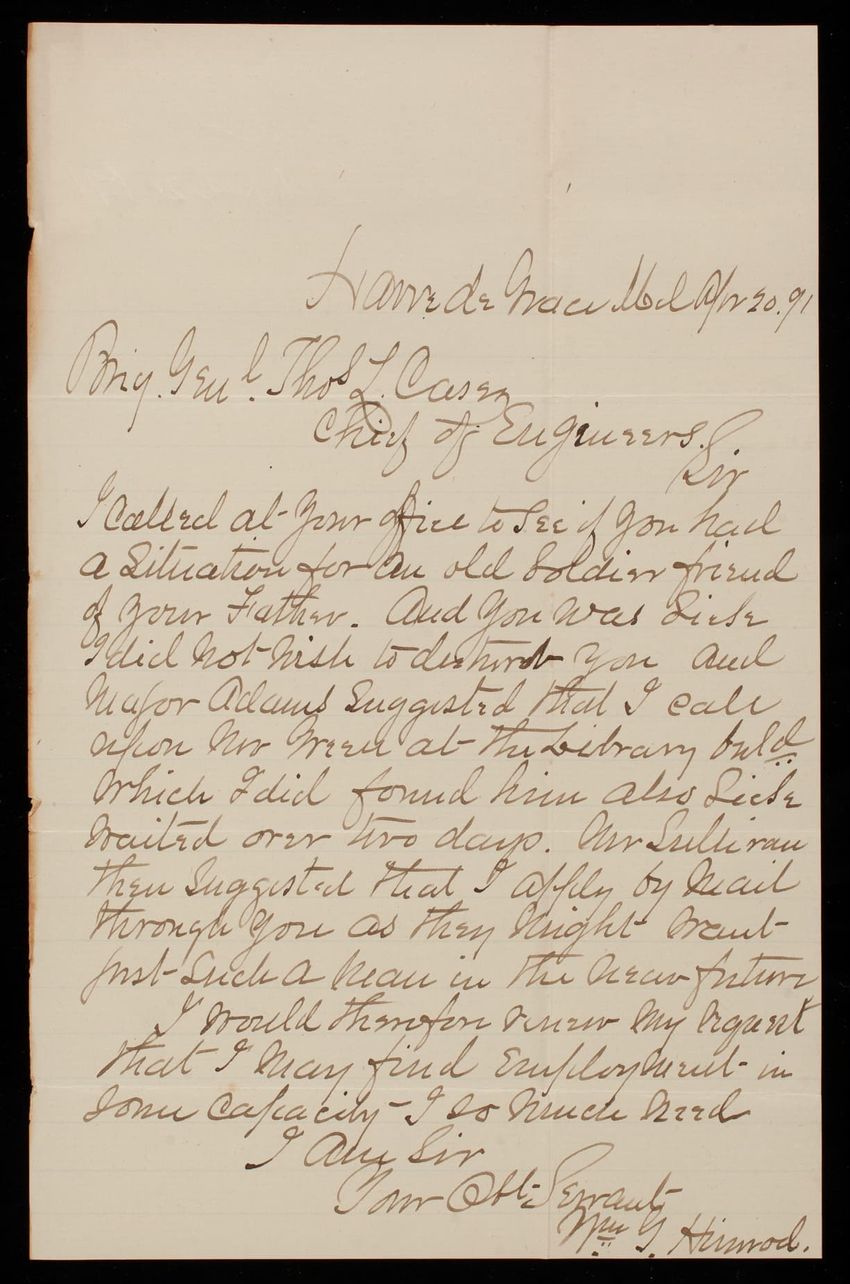 Havre de Grace Md Apr 20. 91
Brig. Genl. Thos L. Casey
Chief of Engineers.
Sir
I called at your office to see if you had
a Situation for an old Soldier friend
of your Father. And you was Sick
I did not wish to disturb you and
Major Adams Suggested that I call
upon Mr Green at the Library build
which I did found him also Sick
waited over two days. Mr Sullivan
then Suggested that I apply by Mail
through you as they might want
just Such a Man in the near future
I would therefore renew my request
that I May find Employment in
some capacity I so much need
I Am Sir
Your Obt Servant
Wm G. Himrod.